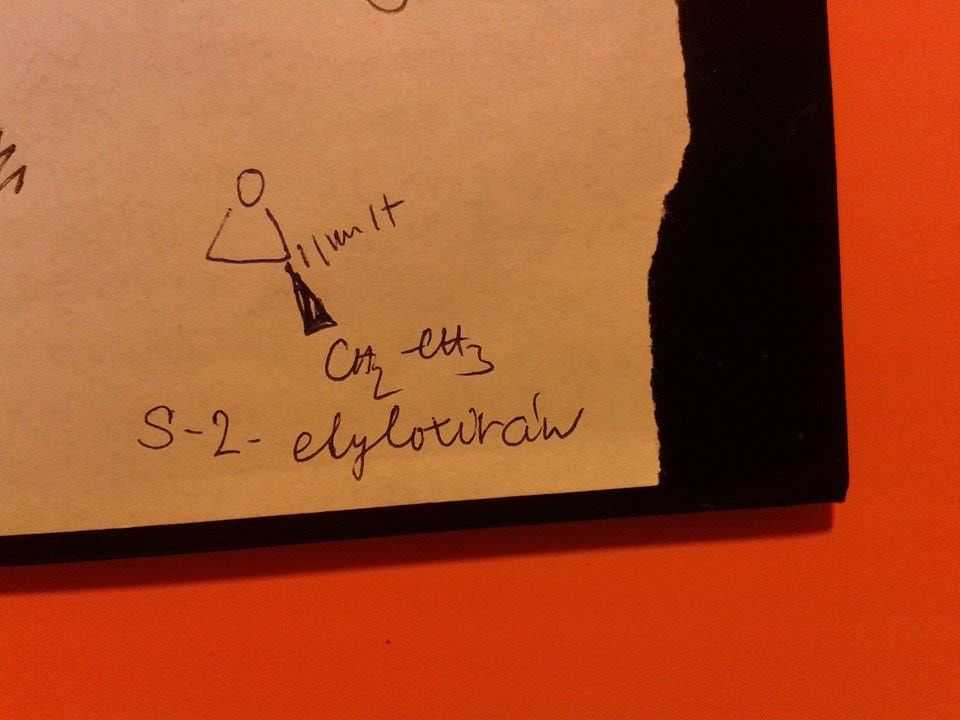 O
H
CH₂-CH₃
S-2- etyloxirán